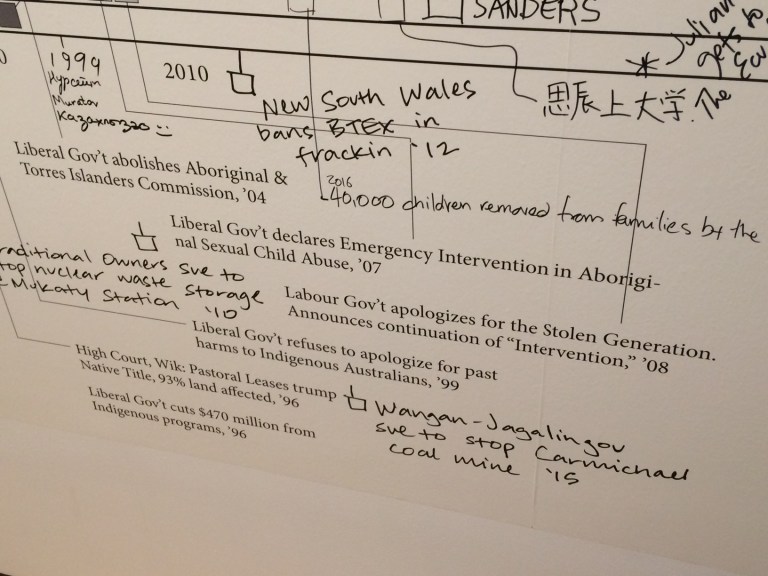 SANDERS
Julian
gets to
1999
2010
思辰上大学. The
New South Wales
bans BTEX in
frackin '12
Liberal Gov't abolishes Aboriginal &
Torres Islanders Commission, '04
2016
40,000 children removed from families by the
Liberal Gov't declares Emergency Intervention in Aborigi-
nal Sexual Child Abuse, '07
raditional Owners sue to
top nuclear waste storage
Mukaty Station '10
Labour Gov't apologizes for the Stolen Generation.
Announces continuation of "Intervention," '08
Liberal Gov't refuses to apologize for past
harms to Indigenous Australians, '99
High Court, Wik: Pastoral Leases trump
Native Title, 93% land affected, '96
Liberal Gov't cuts $470 million from
Indigenous programs, '96
Wangan-Jagalingou
sue to stop Carmichael
coal mine '15